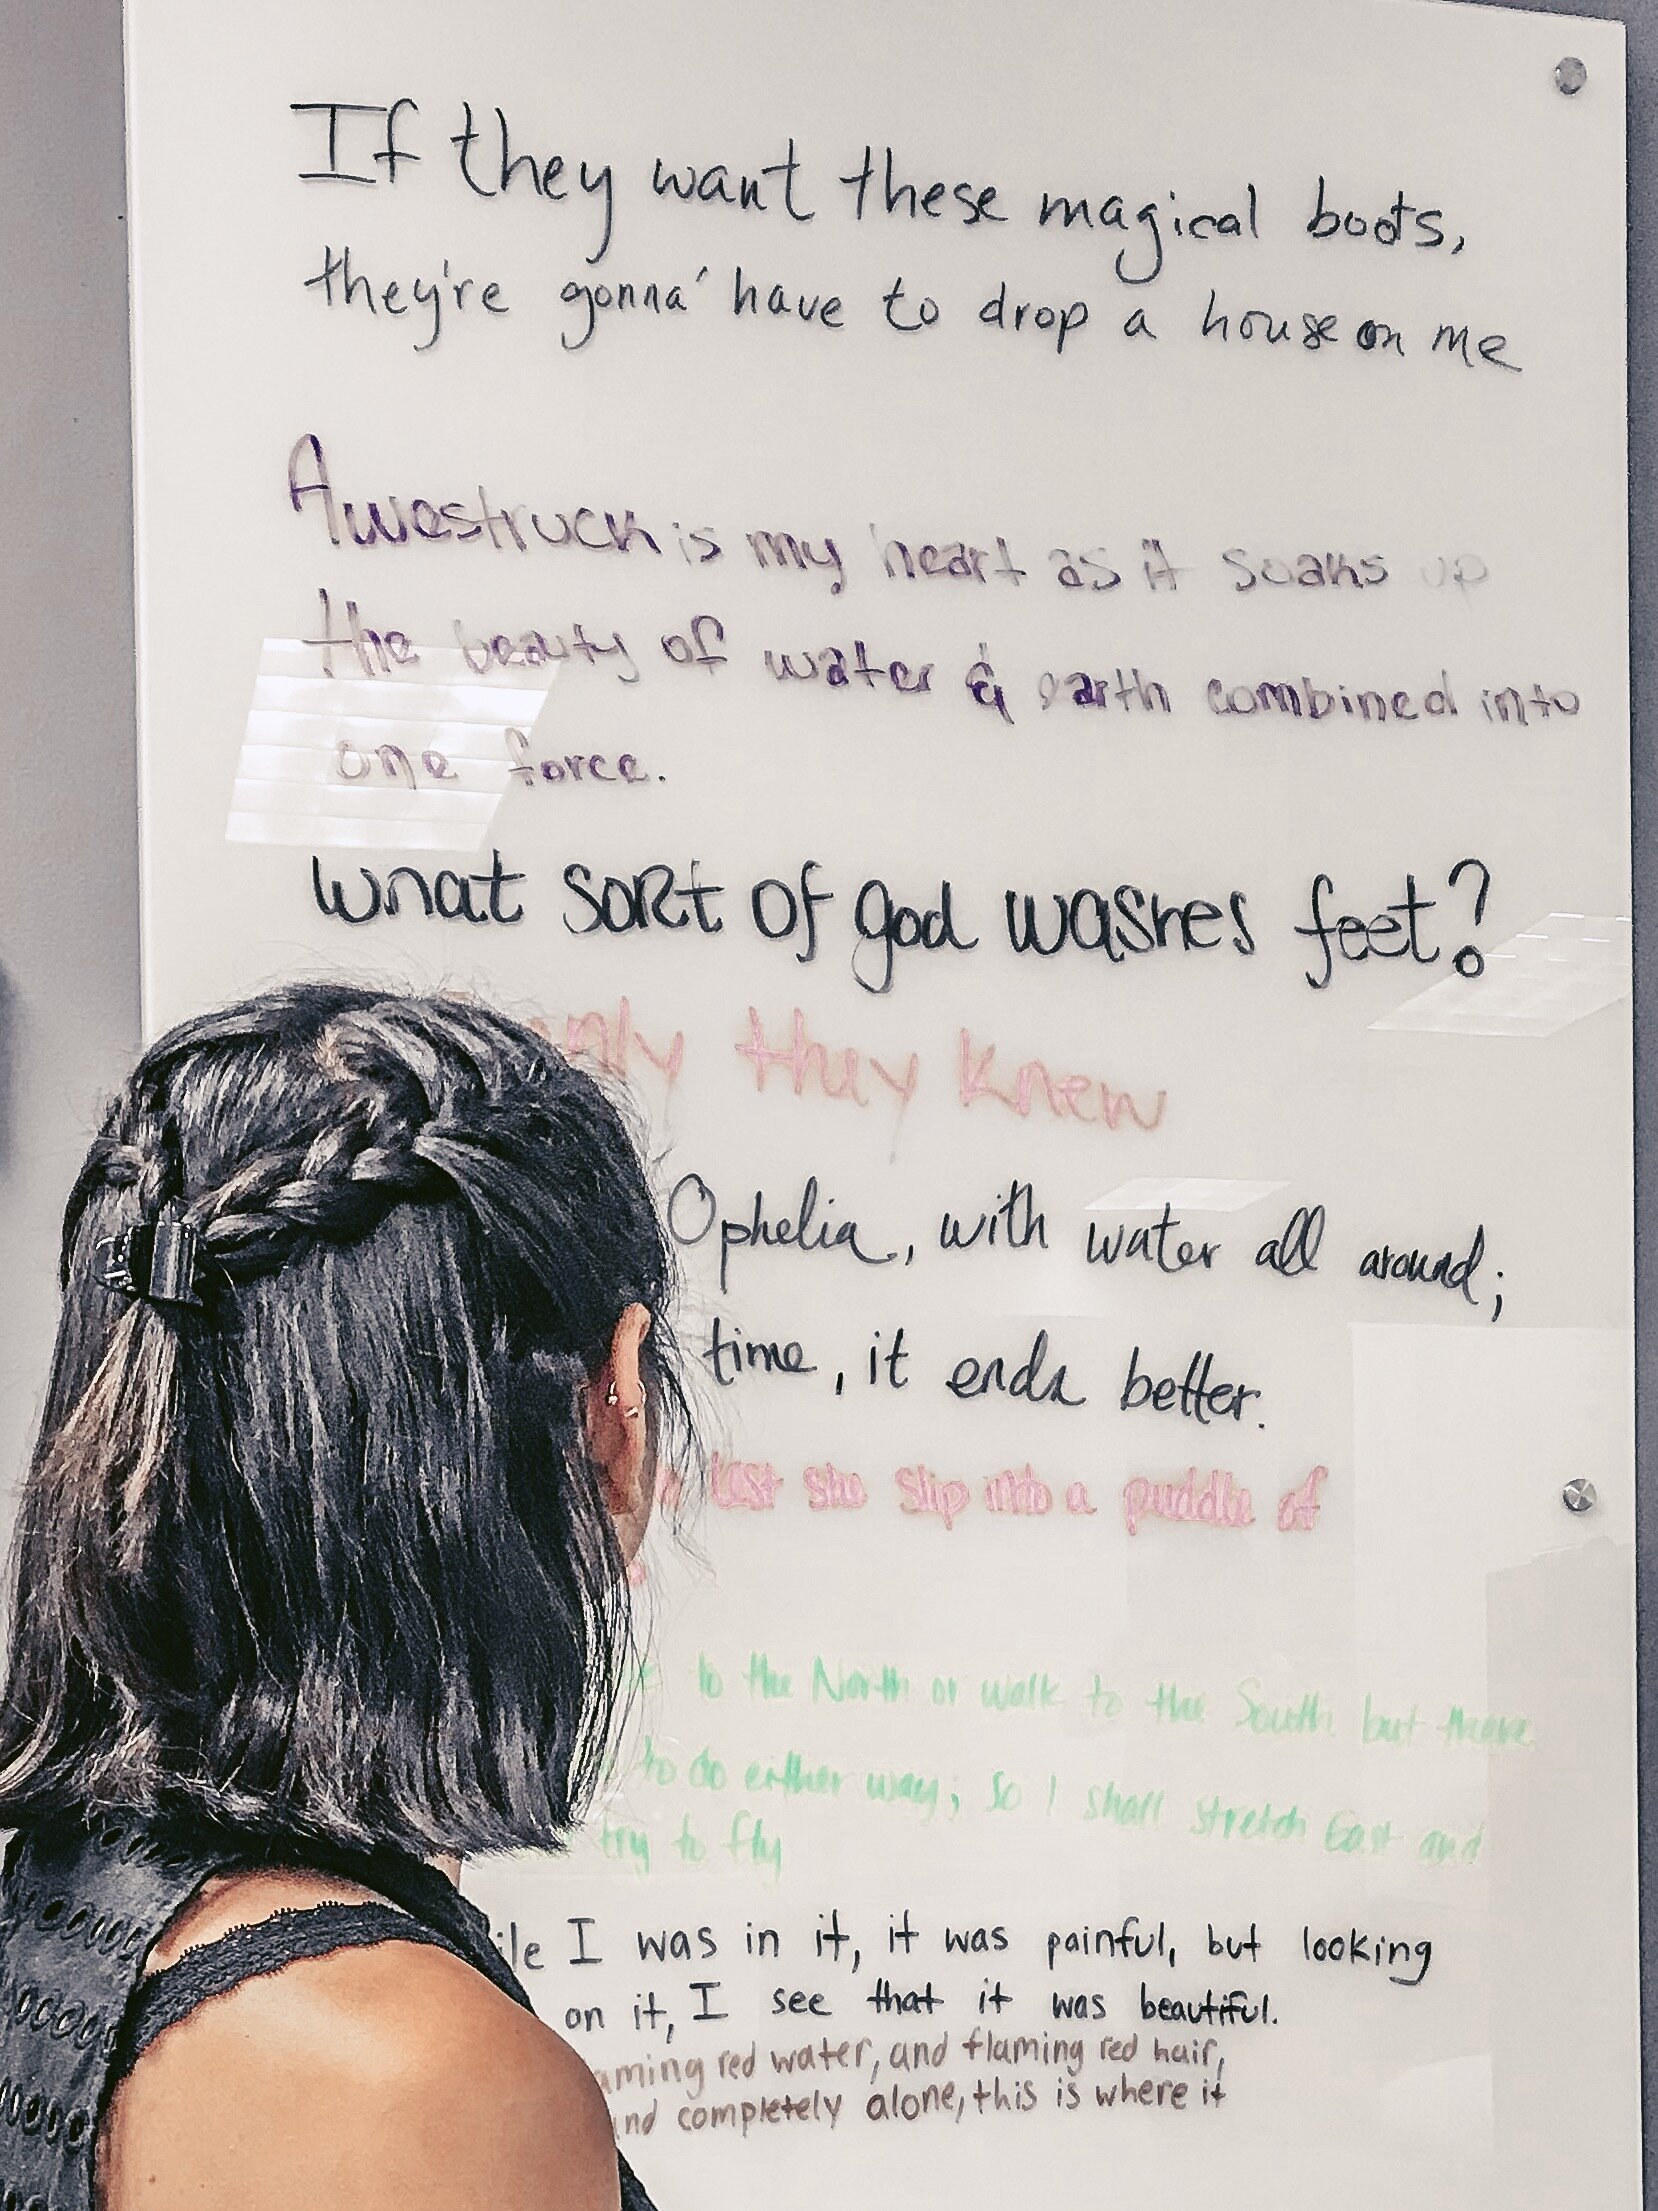 If they want these magical boots,
they're gonna' have to drop a house on me
Awestruck is my heart as it soaks up
the beauty of water & earth combined into
one force.
What sort of god washes feet?
only they knew
Ophelia, with water all around;
time, it ends better.
last she slip into a puddle of
to the North or walk to the South but there
to do either way; so I shall stretch East and
try to fly
I was in it, it was painful, but looking
on it, I see that it was beautiful.
red water, and flaming red hair,
completely alone, this is where it